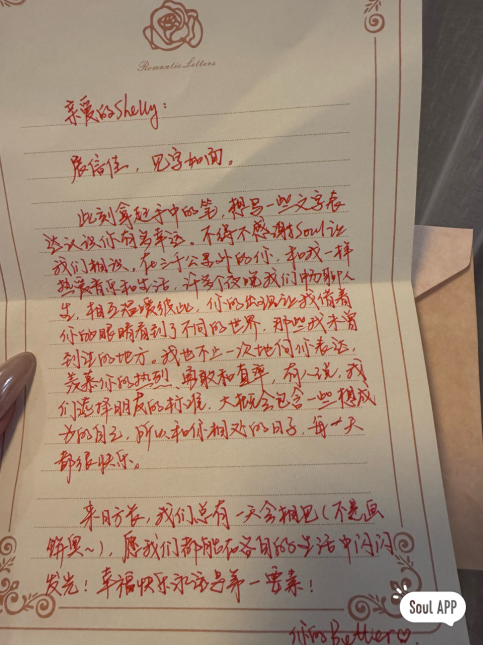 Romantic Letters
亲爱的Shelly：
展信佳，见字如面。
此刻拿起手中的笔，想写一些文字表
达认识你有多幸运。不得不感谢Soul让
我们相识，在三千公里外的你，和我一样
热爱音乐和生活，许多个夜晚我们畅聊人
生，相互温暖彼此，你的出现让我借着
你的眼睛看到了不同的世界，那些我未曾
到过的地方。我也不止一次地向你表达，
羡慕你的热烈、勇敢和直率，有人说，我
们选择朋友的标准，大概会包含一些想成
为的自己，所以和你相处的日子，每一天
都很快乐。
来日方长，我们总有一天会相见（不是画
饼果~），愿我们都能在各自的生活中闪闪
发光！幸福快乐永远是第一要素！
你的Better♡
Soul APP